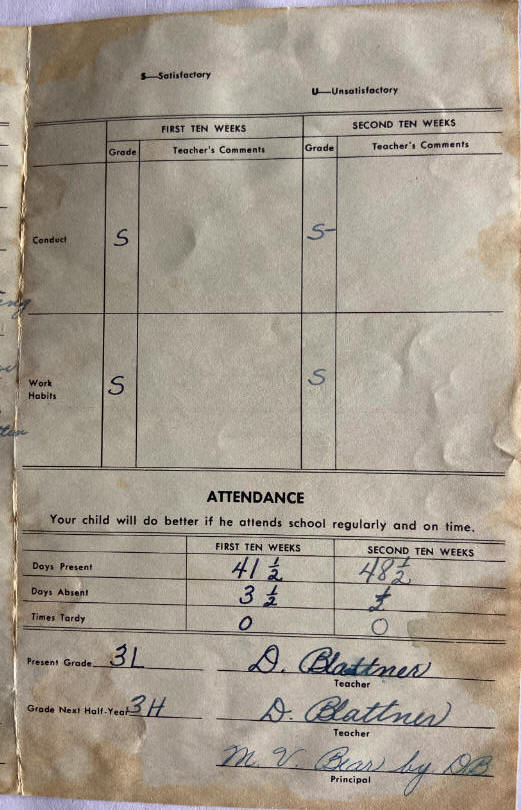 S—Satisfactory
U—Unsatisfactory
FIRST TEN WEEKS SECOND TEN WEEKS
Grade Teacher's Comments Grade Teacher's Comments
Conduct S S-
Work
Habits S S
ATTENDANCE
Your child will do better if he attends school regularly and on time.
FIRST TEN WEEKS SECOND TEN WEEKS
Days Present 41 1/2 48 1/2
Days Absent 3 1/2 1/2
Times Tardy 0 0
Present Grade 3L D. Blattner
Teacher
Grade Next Half-Year 3H D. Blattner
Teacher
M. V. Bear by DB
Principal